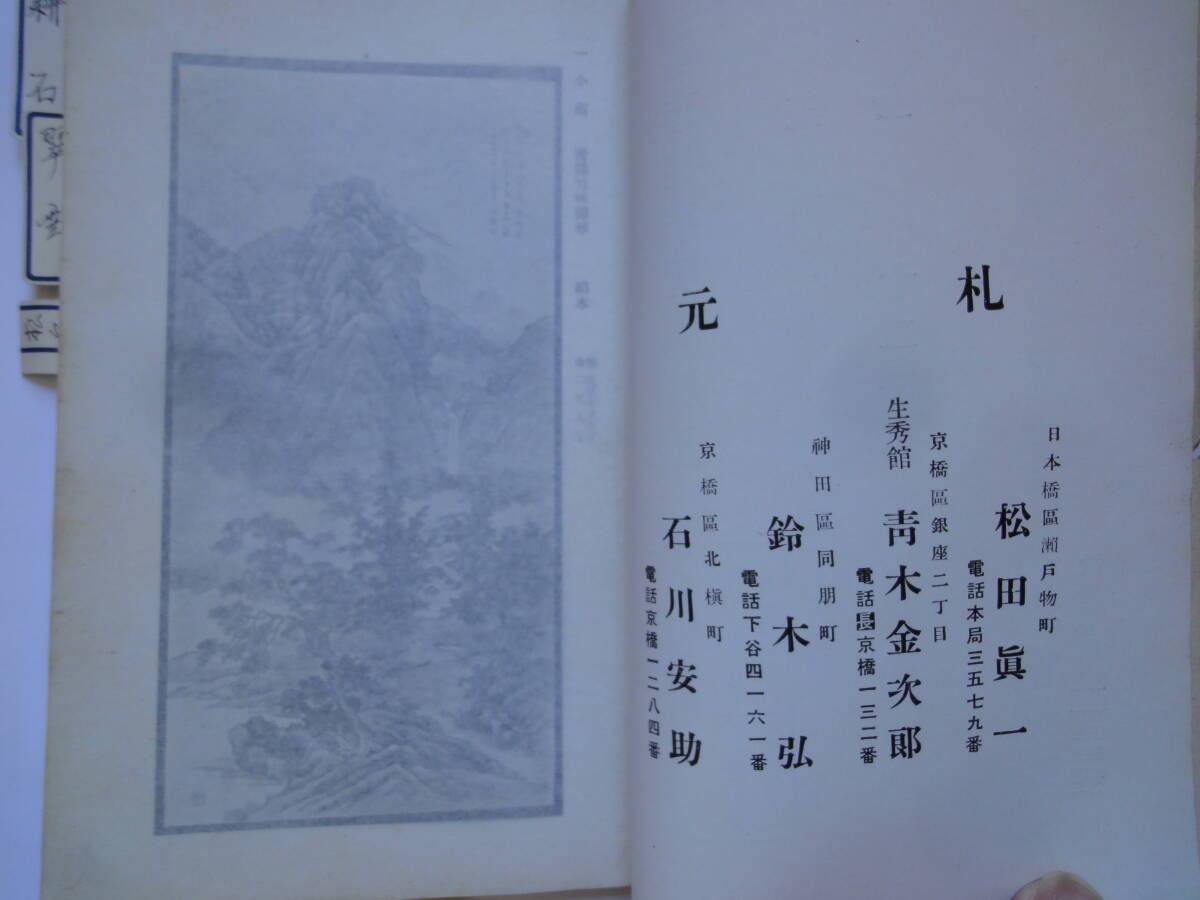 札
元
日本橋區瀨戸物町
松田眞一
電話本局三五七九番
京橋區銀座二丁目
生秀館 靑木金次郞
電話長京橋一三二番
神田區同朋町
鈴木弘
電話下谷四一六一番
京橋區北槇町
石川安助
電話京橋一二八四番
石